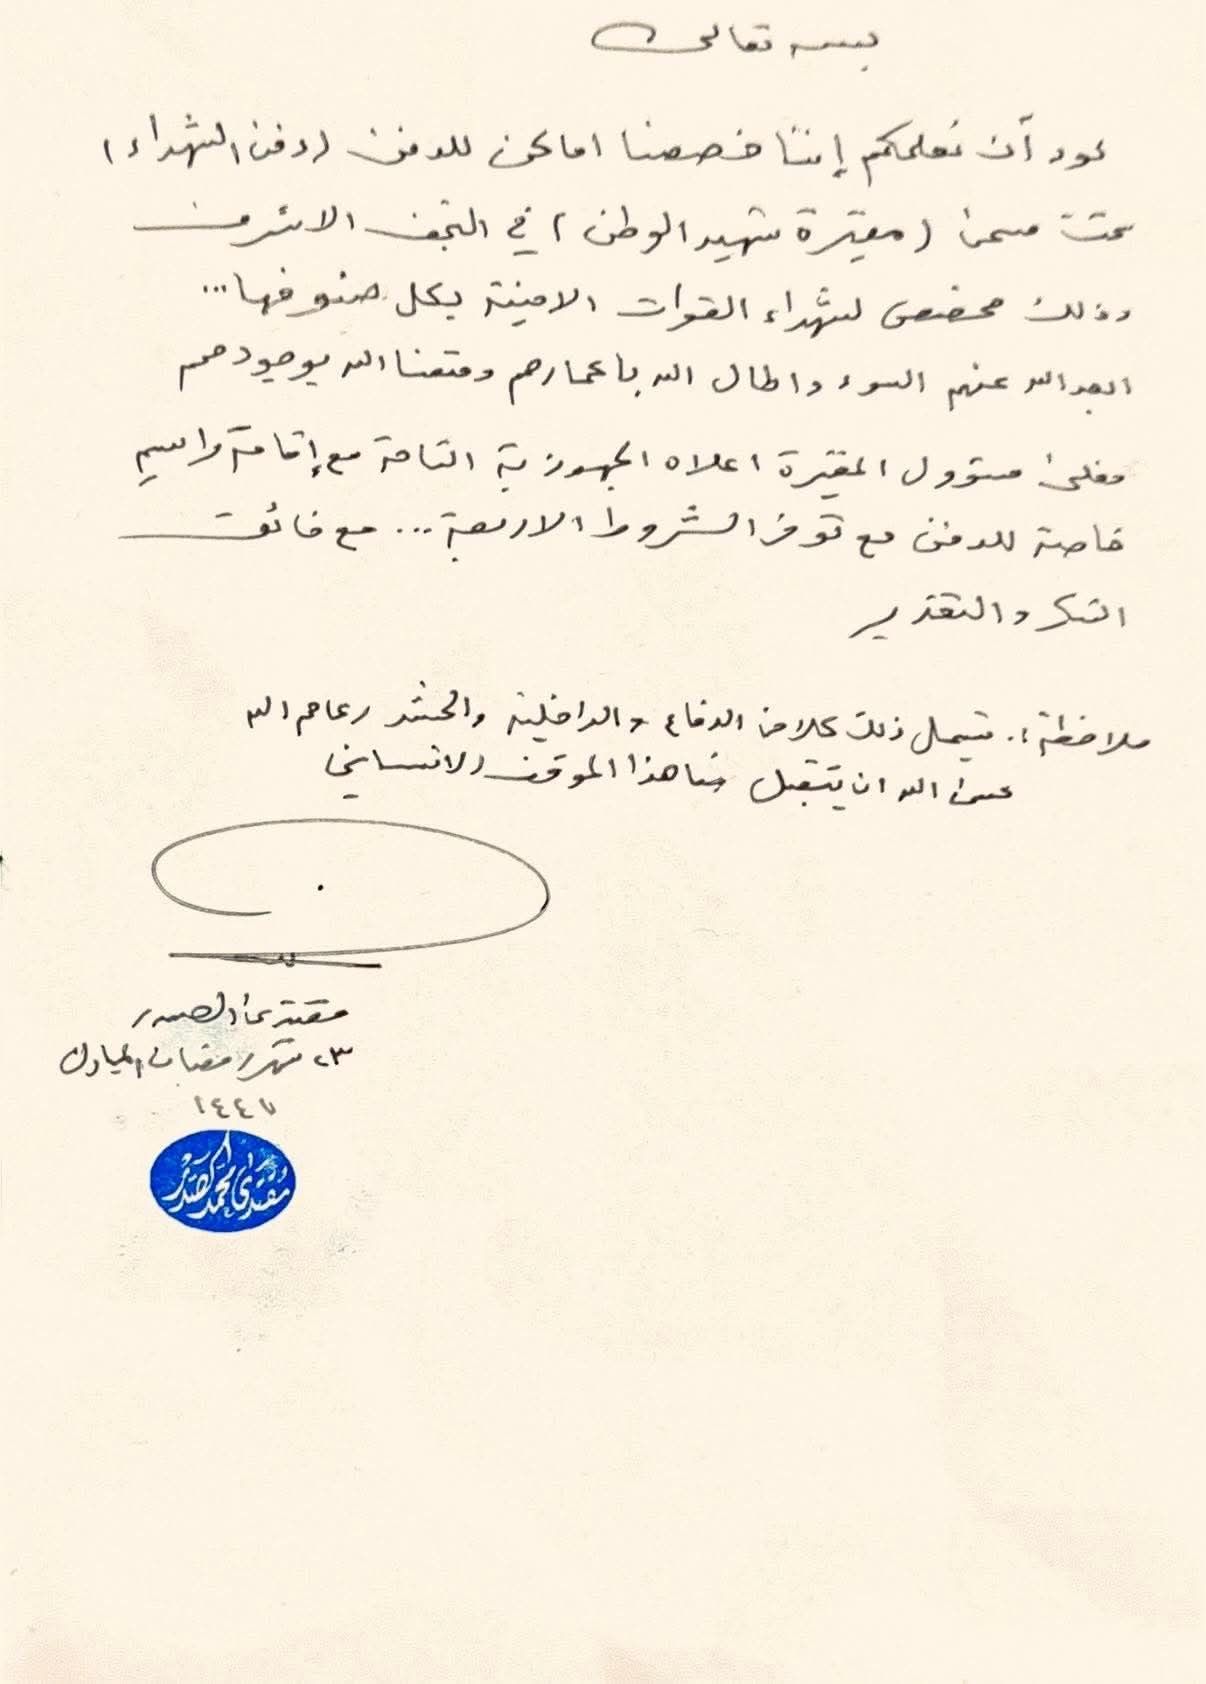 بسمه تعالى
نود أن نعلمكم إننا خصصنا اماكن للدفن (دفن الشهداء)
تحت مسمى (مقبرة شهيد الوطن) في النجف الاشرف
وذلك مخصص لشهداء القوات الامنية بكل صنوفها...
ابعد الله عنهم السوء واطال الله باعمارهم ومتعنا الله بوجودهم
فعلى مسؤول المقبرة اعلاه الجهوزية التامة مع إقامة مراسيم
خاصة للدفن مع توفر الشروط الاربعة... مع فائق
الشكر والتقدير
ملاحظة:. يشمل ذلك كلا من الدفاع والداخلية والحشد رعاهم الله
عسى الله ان يتقبل منا هذا الموقف الانساني
مقتدى الصدر
٢٣ شهر رمضان المبارك
١٤٤٧
مقتدى محمد الصدر